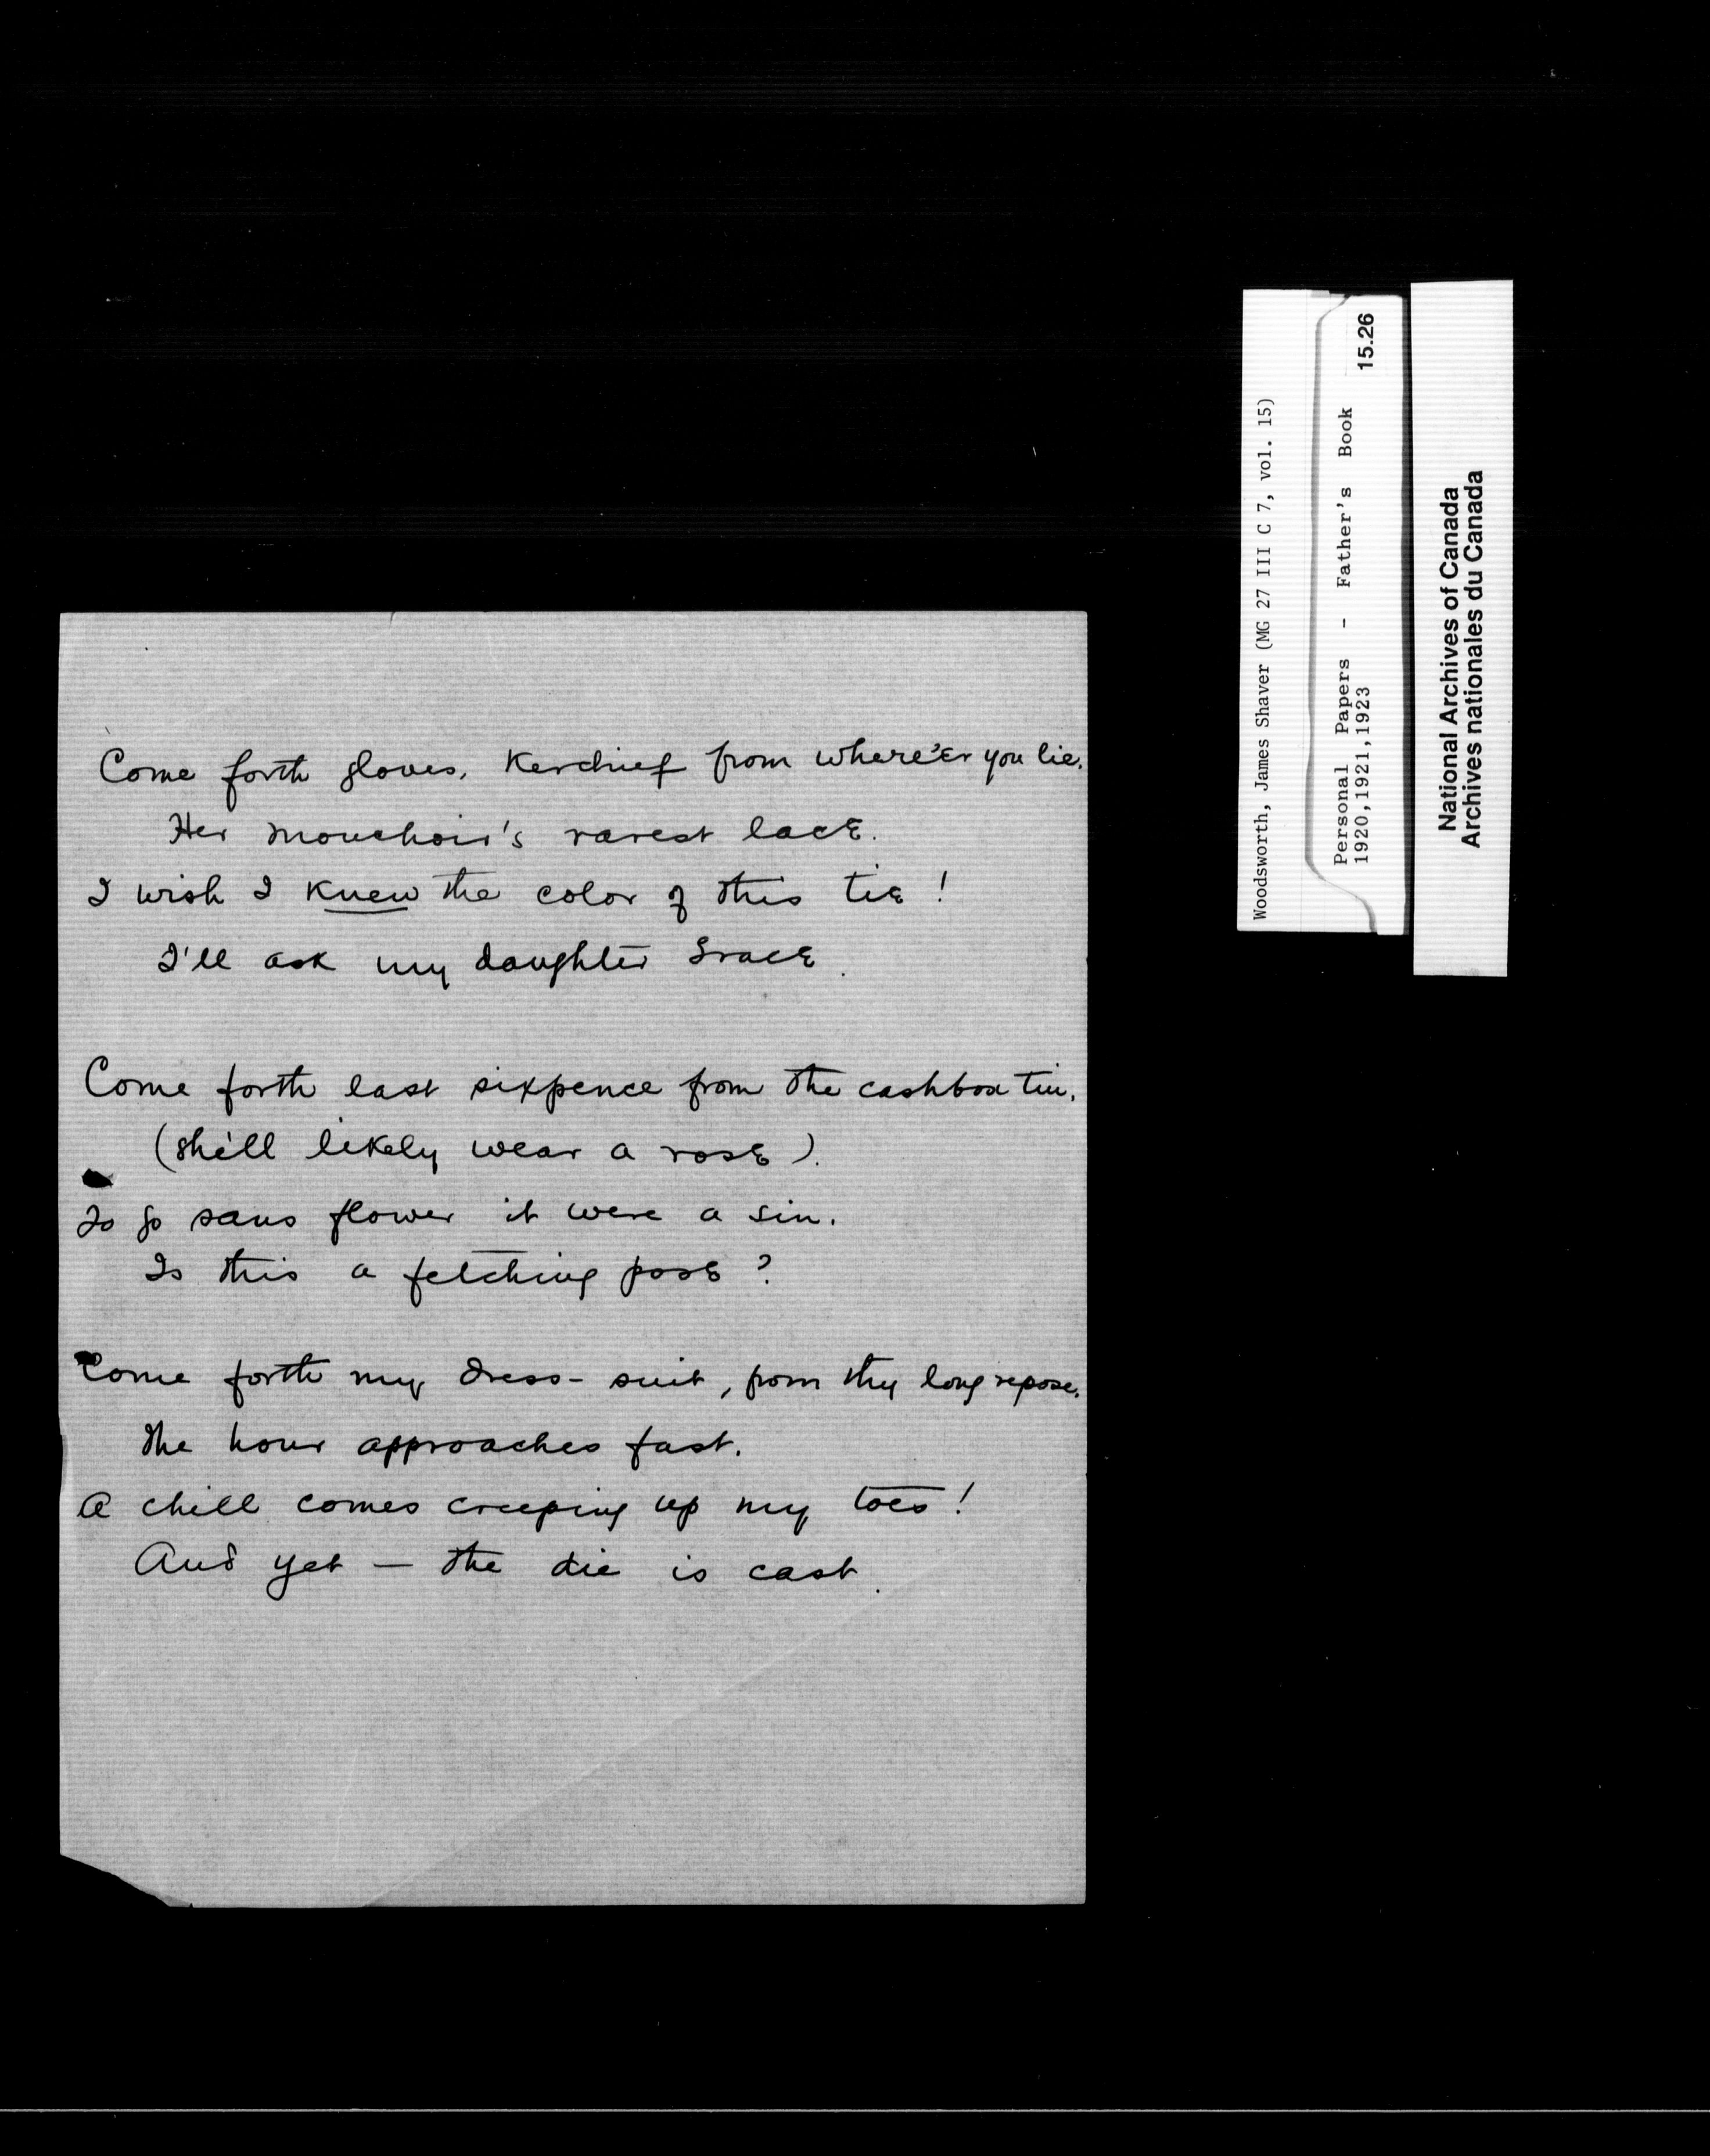 Come forth gloves, Kerchief from where'er you lie.
Her mouchoir's rarest lace.
I wish I knew the color of this tie!
I'll ask my daughter Grace.
Come forth last sixpence from the cashbox tin.
(she'll likely wear a rose).
To go sans flower it were a sin.
Is this a fetching pose?
Come forth my dress-suit, from thy long repose.
The hour approaches fast.
A chill comes creeping up my toes!
And yet — the die is cast.
Woodsworth, James Shaver (MG 27 III C 7, vol. 15)
Personal Papers - Father's Book 15.26
1920,1921,1923
National Archives of Canada
Archives nationales du Canada